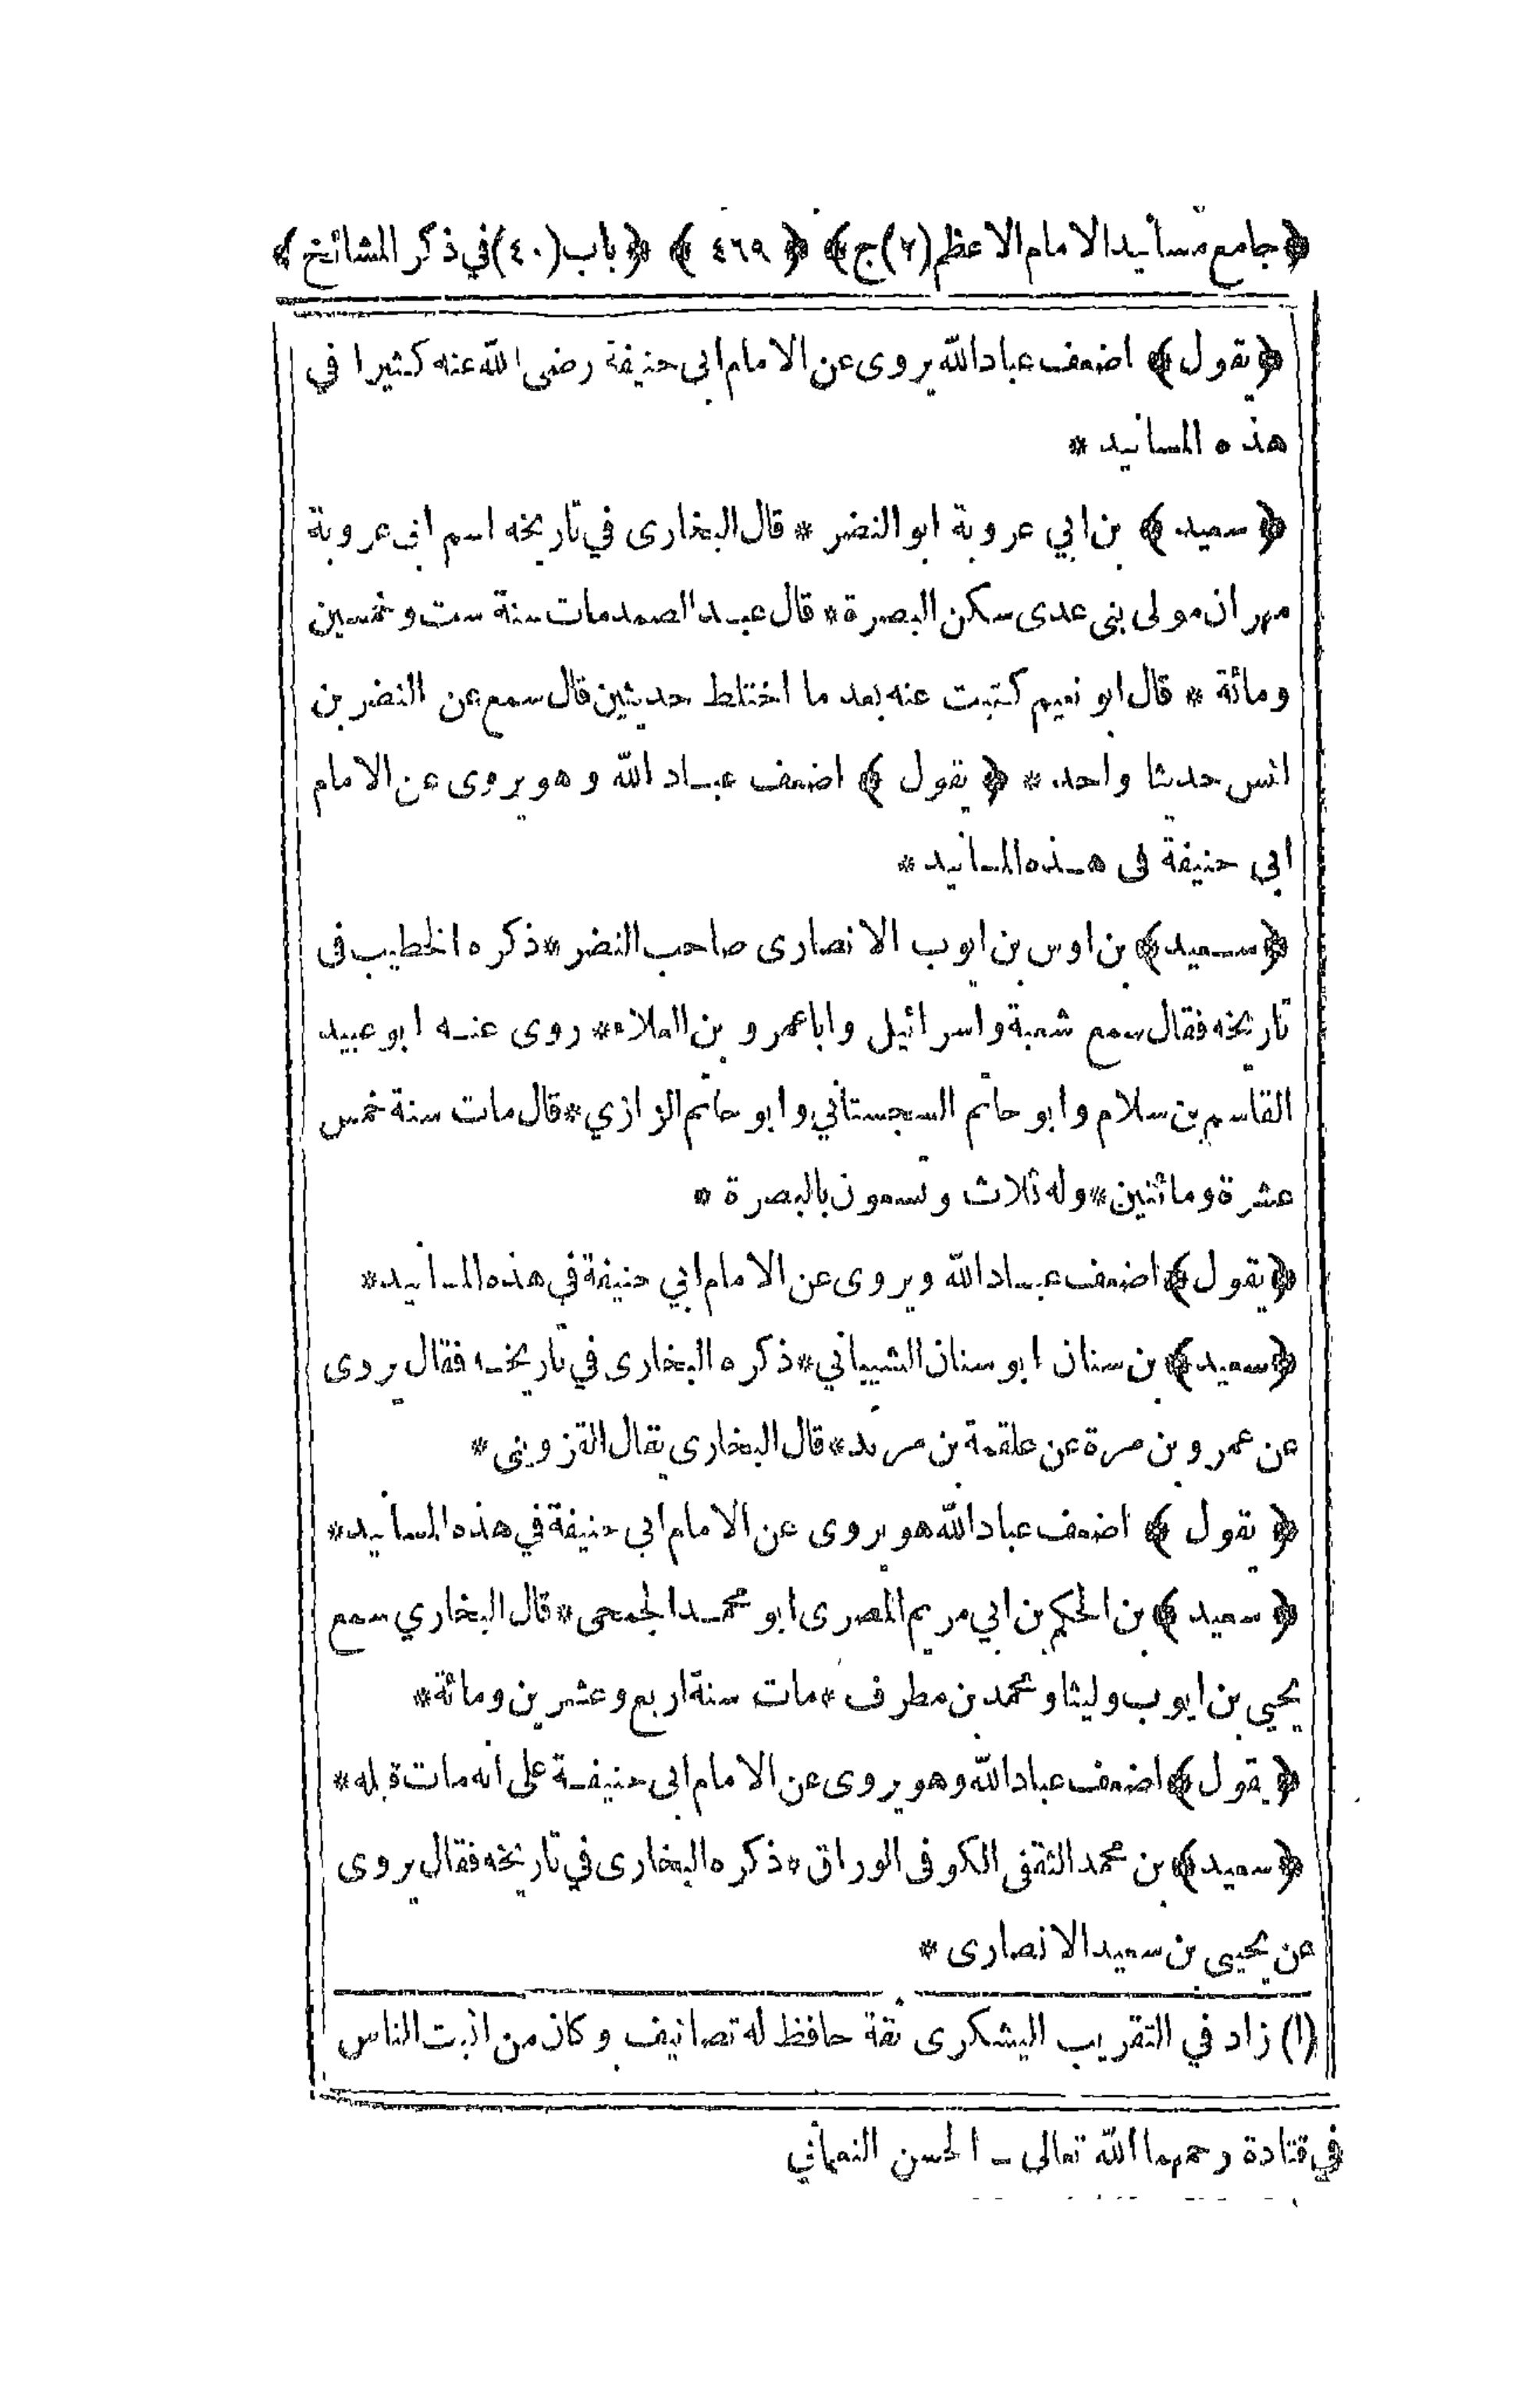 ﴿جامع مسانيد الامام الاعظم(٢)ج﴾ ﴿٤٦٩﴾ ﴿باب(٤٠)في ذكر المشائخ﴾
﴿يقول﴾ اضعف عباد الله يروى عن الامام ابى حنيفة رضى الله عنه كثيرا في
هذه المسانيد *
﴿سعيد﴾ بن ابي عروبة ابو النضر * قال البخارى في تاريخه اسم ابى عروبة
مهران مولى بنى عدى سكن البصرة * قال عبد الصمد مات سنة ست وخمسين
ومائة * قال ابو نعيم كتبت عنه بعد ما اختلط حديثين قال سمع عن النضر بن
انس حديثا واحد * ﴿يقول﴾ اضعف عباد الله وهو يروى عن الامام
ابي حنيفة فى هذه المسانيد *
﴿سعيد﴾ بن اوس بن ايوب الانصارى صاحب النضر * ذكره الخطيب فى
تاريخه فقال سمع شعبة واسرائيل وابا عمرو بن العلاء * روى عنه ابو عبيد
القاسم بن سلام وابو حاتم السجستاني وابو حاتم الرازي * قال مات سنة خمس
عشرة ومائتين * وله ثلاث وتسعون بالبصرة *
﴿يقول﴾ اضعف عباد الله ويروى عن الامام ابي حنيفة في هذه المسانيد *
﴿سعيد﴾ بن سنان ابو سنان الشيباني * ذكره البخارى في تاريخه فقال يروى
عن عمرو بن مرة عن علقمة بن مرثد * قال البخارى يقال القزوينى *
﴿يقول﴾ اضعف عباد الله هو يروى عن الامام ابي حنيفة في هذه المسانيد *
﴿سعيد﴾ بن الحكم بن ابي مريم المصرى ابو محمد الجمحى * قال البخاري سمع
يحيى بن ايوب وليثا ومحمد بن مطرف * مات سنة اربع وعشرين ومائة *
﴿يقول﴾ اضعف عباد الله وهو يروى عن الامام ابى حنيفة على انه مات قبله *
﴿سعيد﴾ بن محمد الثقفى الكوفى الوراق * ذكره البخارى في تاريخه فقال يروى
عن يحيى بن سعيد الانصارى *
(١) زاد في التقريب اليشكرى ثقة حافظ له تصانيف وكان من اثبت الناس
في قتادة رحمهما الله تعالى - الحسن النعماني